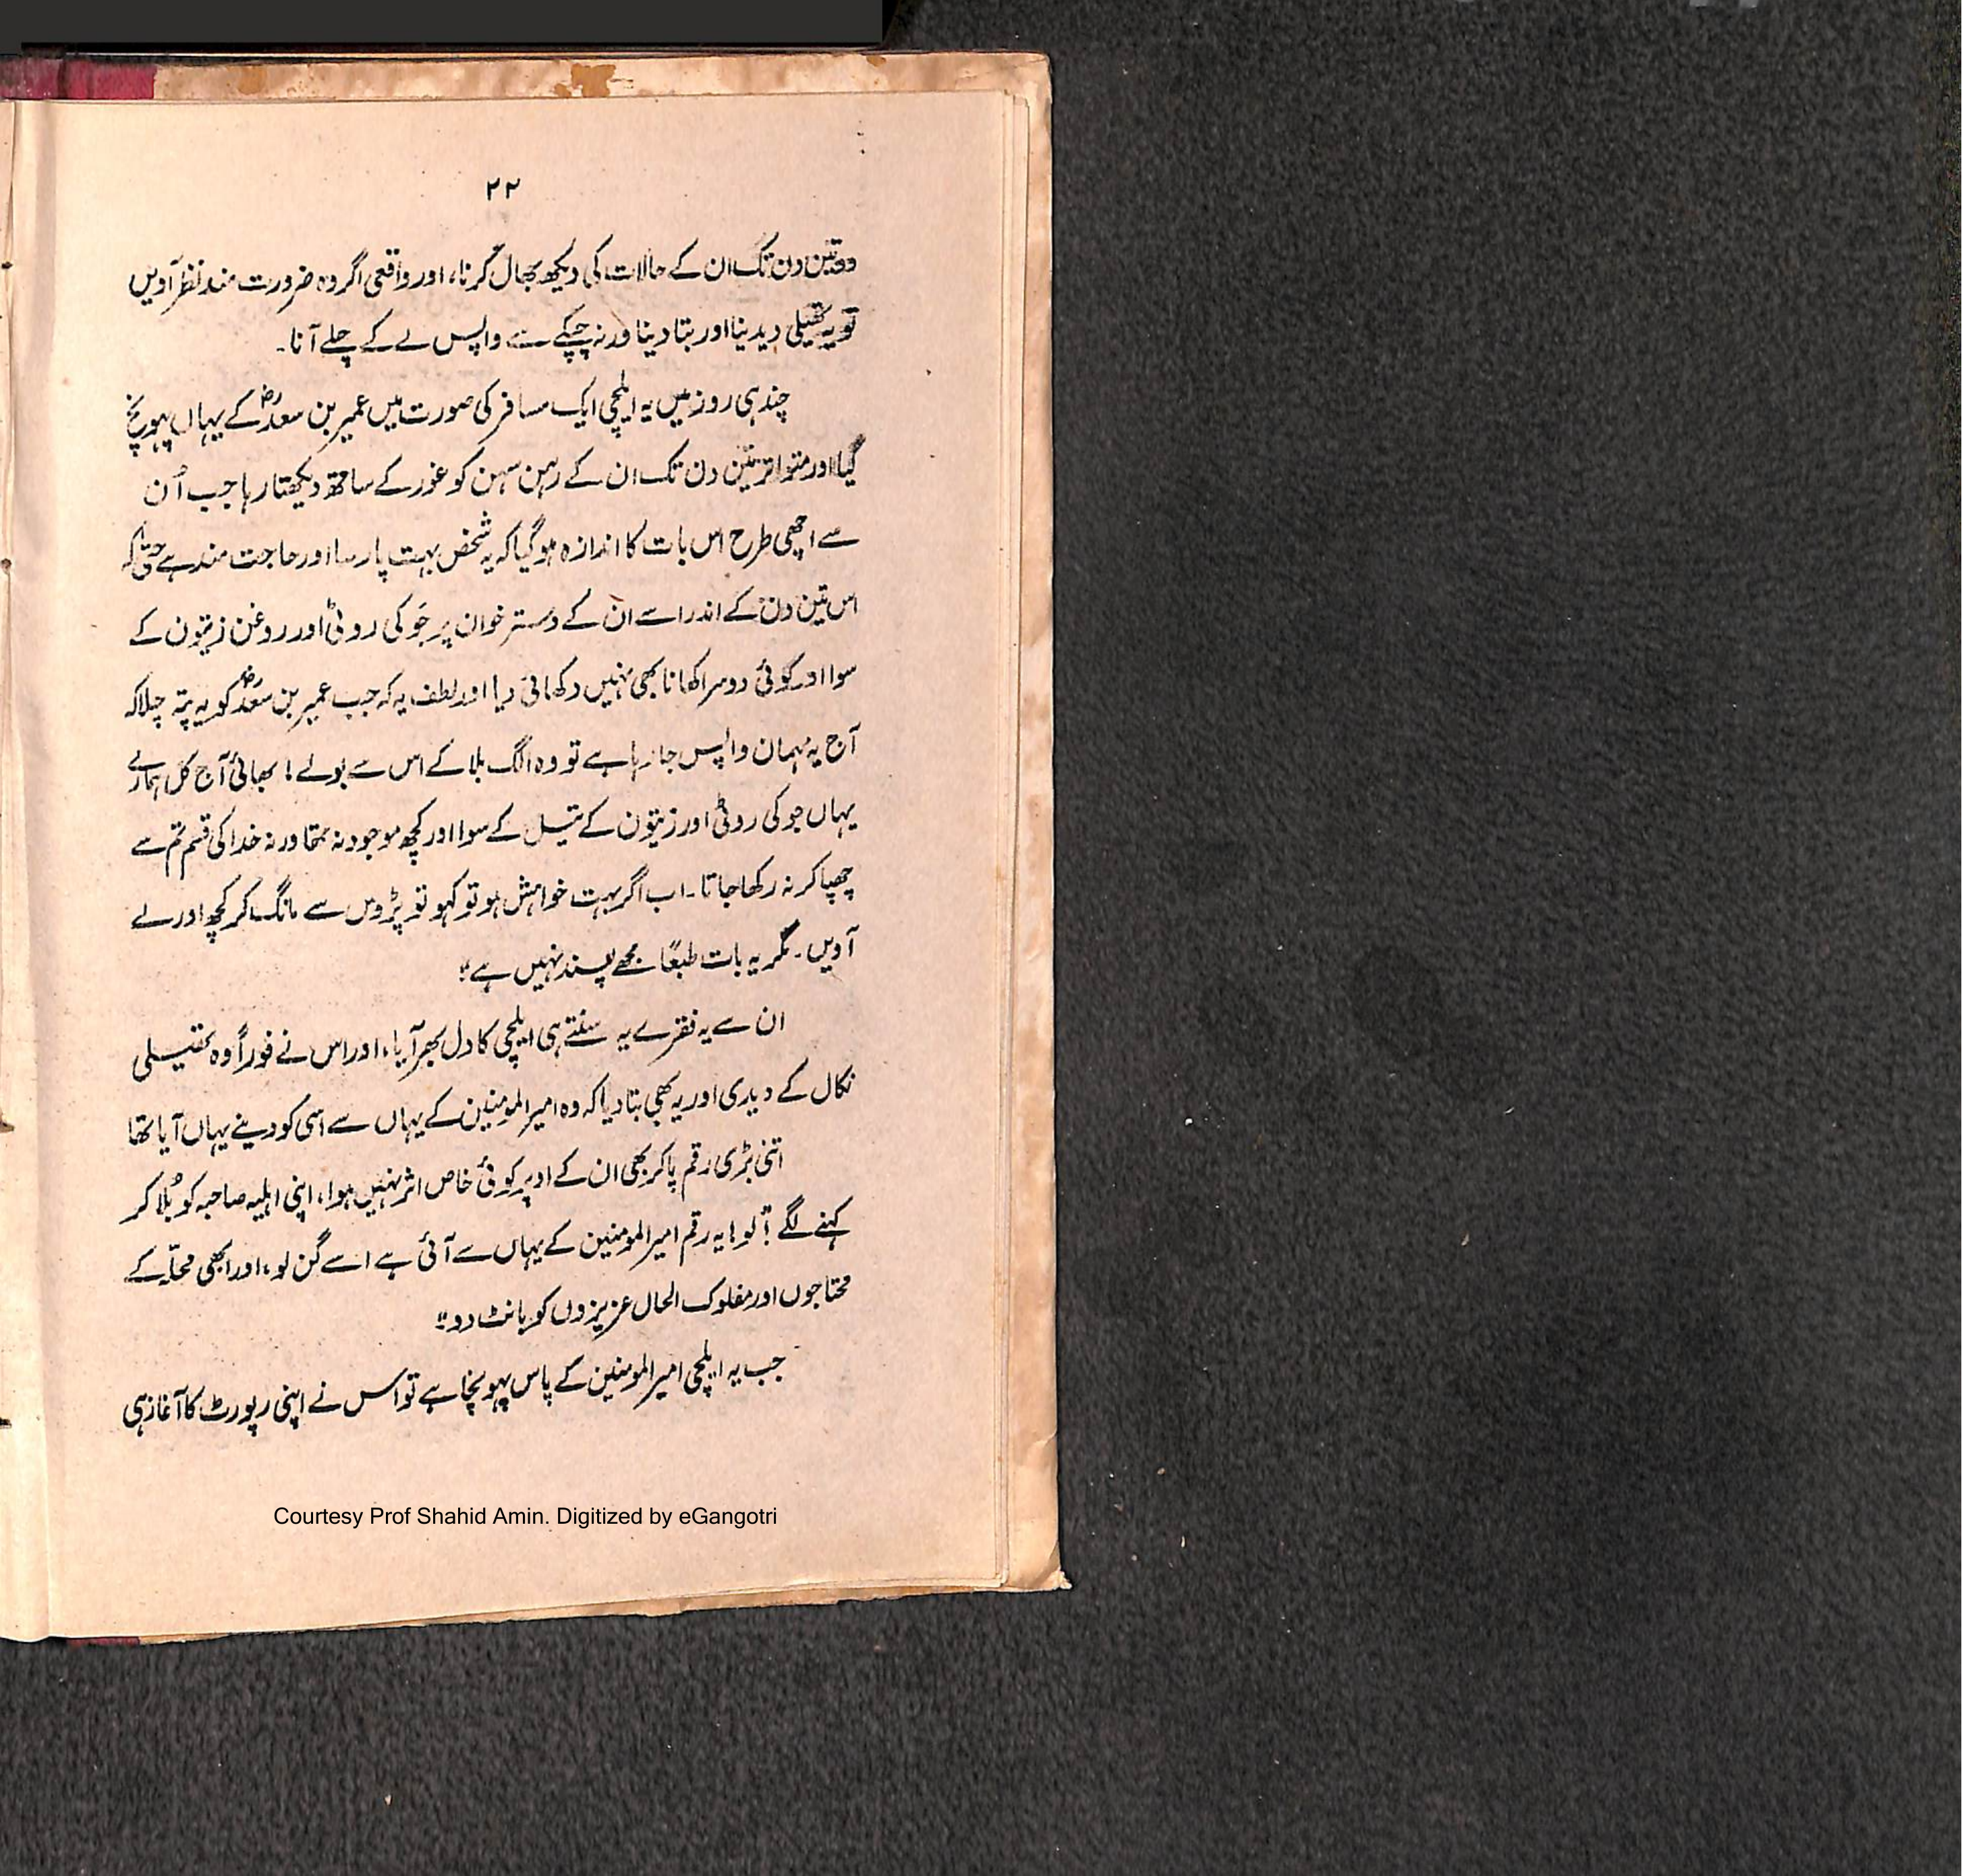 ۲۲
دو تین دن تک ان کے حالات کی دیکھ بھال کرنا، اور واقعی اگر وہ ضرورت مند نظر آویں
تو یہ تھیلی دیدینا اور بتا دینا ورنہ چپکے سے واپس لے کے چلے آنا۔
چند ہی روز میں یہ ایلچی ایک مسافر کی صورت میں عمیر بن سعدؓ کے یہاں پہونچ
گیا اور متواتر تین دن تک ان کے رہن سہن کو غور کے ساتھ دیکھتا رہا جب اُن
سے اچھی طرح اس بات کا اندازہ ہو گیا کہ یہ شخص بہت پارسا اور حاجت مند ہے حتیٰ کہ
اس تین دن کے اندر اسے ان کے دستر خوان پر جَو کی روٹی اور روغن زیتون کے
سوا اور کوئی دوسرا کھانا بھی نہیں دکھائی دیا اور لطف یہ کہ جب عمیر بن سعدؓ کو یہ پتہ چلا کہ
آج یہ مہمان واپس جا رہا ہے تو وہ الگ بلا کے اس سے بولے! بھائی آج کل ہمارے
یہاں جو کی روٹی اور زیتون کے تیل کے سوا اور کچھ موجود نہ تھا ورنہ خدا کی قسم تم سے
چھپا کر نہ رکھا جاتا۔ اب اگر بہت خواہش ہو تو کہو تو پڑوس سے مانگ کر کچھ اور لے
آویں۔ مگر یہ بات طبعًا مجھے پسند نہیں ہے"
ان سے یہ فقرے یہ سنتے ہی ایلچی کا دل بھر آیا، اور اس نے فوراً وہ تھیلی
نکال کے دیدی اور یہ بھی بتا دیا کہ وہ امیرالمومنین کے یہاں سے اسی کو دینے یہاں آیا تھا
اتنی بڑی رقم پا کر بھی ان کے اوپر کوئی خاص اثر نہیں ہوا، اپنی اہلیہ صاحبہ کو بُلا کر
کہنے لگے "لو! یہ رقم امیرالمومنین کے یہاں سے آئی ہے اسے گن لو، اور ابھی محلّہ کے
محتاجوں اور مفلوک الحال عزیزوں کو بانٹ دو"
جب یہ ایلچی امیرالمومنین کے پاس پہونچا ہے تو اس نے اپنی رپورٹ کا آغاز ہی
Courtesy Prof Shahid Amin. Digitized by eGangotri